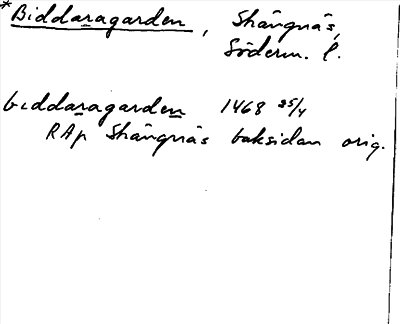 *Biddaragarden, Strängnäs,
Söderm. l.
biddaragarden 1468 25/4
RAp Strängnäs baksidan orig.